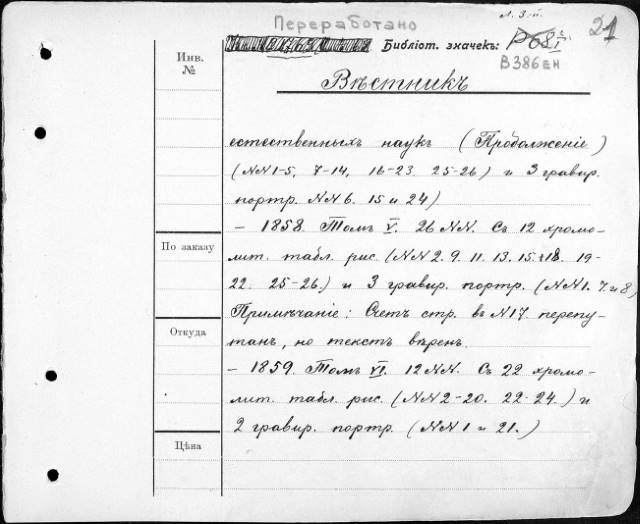 л. З.й.
Переработано
21
Библіот. значекъ:
В386ен
Инв.
№
Вѣстникъ
естественныхъ наукъ (Продолженіе)
(NN 1-5, 7-14, 16-23. 25-26) и 3 гравир.
портр. NN 6. 15 и 24)
– 1858. Томъ V. 26 NN. Съ 12 хромо-
По заказу
лит. табл. рис. (NN 2. 9. 11. 13. 15. 18. 19-
22. 25-26.) и 3 гравир. портр. (NN 1. 7. и 8)
Примѣчаніе: Счетъ стр. въ N 17. перепу-
Откуда
танъ, но текстъ вѣренъ.
– 1859. Томъ VI. 12 NN. Съ 22 хромо-
лит. табл. рис. (NN 2-20. 22-24.) и
2 гравир. портр. (NN 1 и 21.)
Цѣна